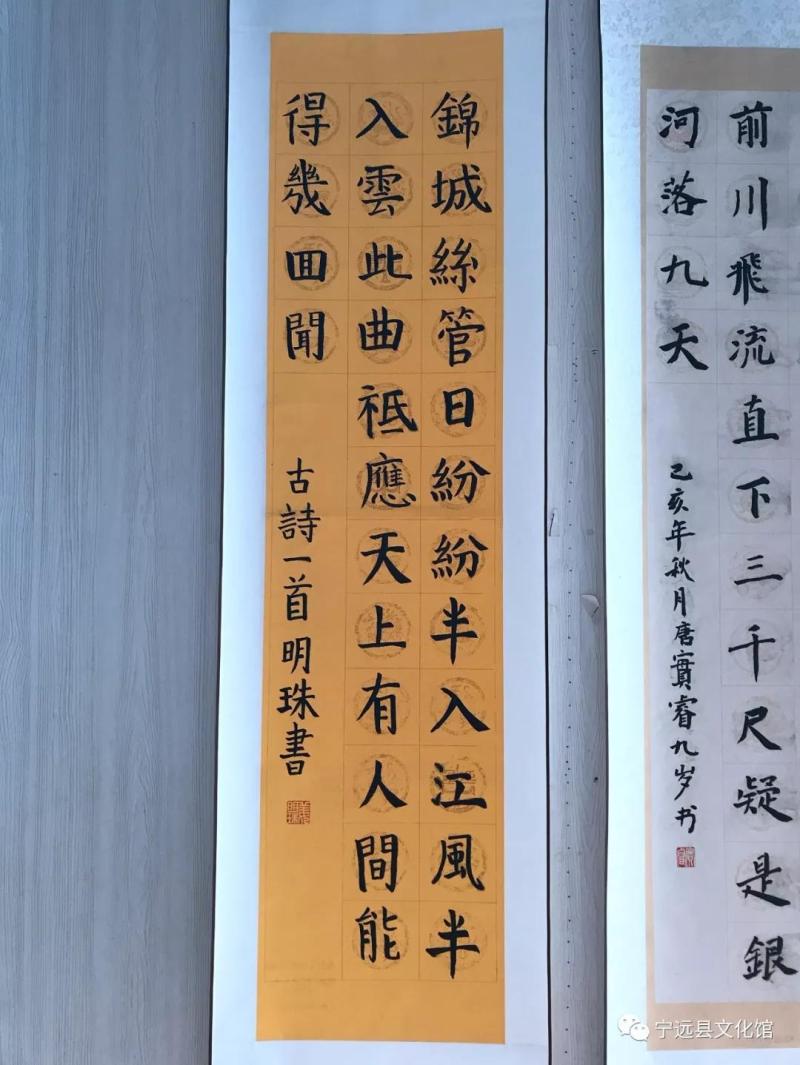 錦城絲管日紛紛半入江風半
入雲此曲祗應天上有人間能
得幾回聞
古詩一首明珠書
前川飛流直下三千尺疑是銀
河落九天
己亥年秋月唐實睿九岁书
宁远县文化馆